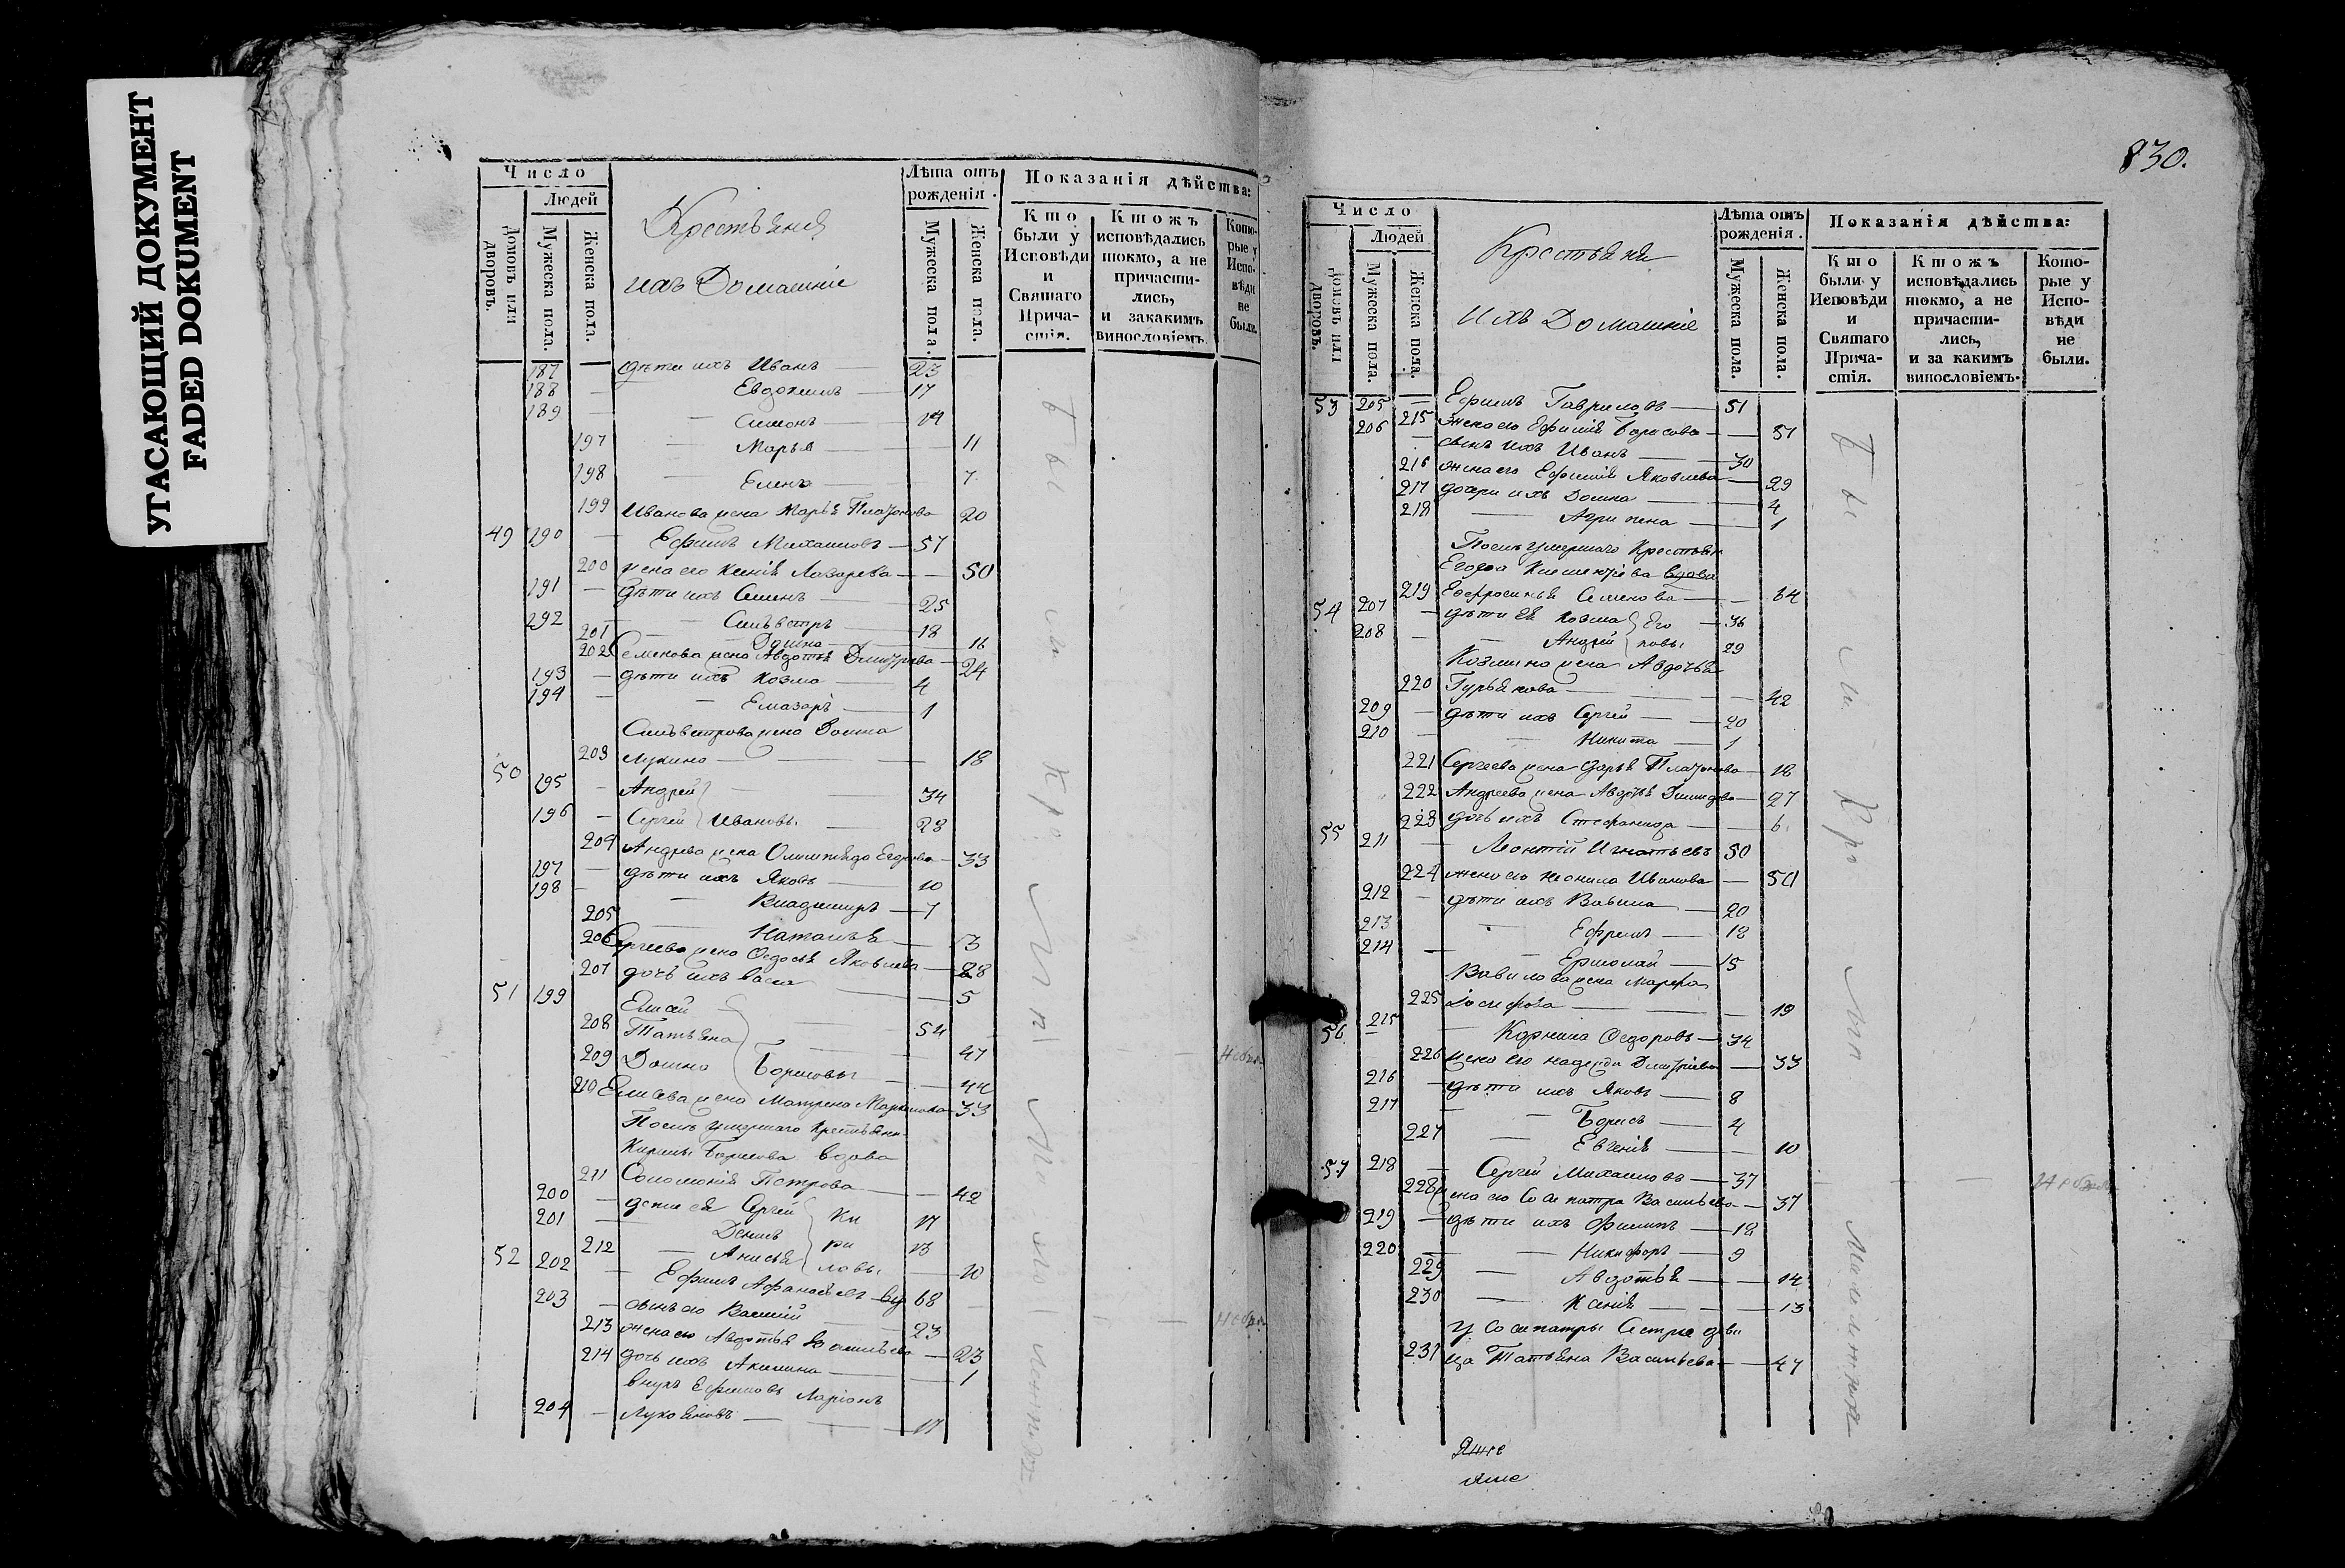 УГАСАЮЩИЙ ДОКУМЕНТ
FADED DOKUMENT
Число
Людей
Домовъ или дворовъ.
Мужеска пола.
Женска пола.
Крестьяне
ихъ Домашніе
Лѣта отъ рожденія.
Мужеска пола.
Женска пола.
Показанія дѣйства:
Кто были у Исповѣди и Святаго Причастія.
Ктожъ исповѣдались токмо, а не причастились, и закакимъ винословіемъ.
Которые у Исповѣди не были.
187 — дѣти ихъ Иванъ — 23
188 — Евдокимъ — 17
189 — Симонъ — 14
197 — Марья — 11
198 — Елена — 7
199 Иванова жена Марья Платонова 20
49 190 — Ефимъ Михаиловъ — 57
200 жена его Ксенія Лазарева — 50
191 — дѣти ихъ Семенъ — 25
292 — Сильвестръ — 18
201 — Домна — 16
202 Семенова жена Авдотья Дмитріева — 24
193 — дѣти ихъ Козма — 4
194 — Елизаръ — 1
Сильвестрова жена Домна
203 Лукина — 18
50 195 — Андрей — 34
196 — Сергей Ивановы — 28
204 Андреева жена Олимпіяда Егорова — 33
197 — дѣти ихъ Яковъ — 10
198 — Владимиръ — 7
205 — Наталья — 13
206 Сергеева жена Ѳедосья Яковлева — 28
207 дочь ихъ Васса — 5
51 199 Елисей — 54
208 Татьяна — 47
209 Домна Борисовы — 44
210 Елисева жена Матрена Маркинова — 33
Послѣ умершаго Крестьяни
Кирилы Борисова вдова
211 Соломонія Петрова — 42
200 — дети ея Сергей Ки 17
201 — Денисъ ри 13
212 — Анисья ловы — 10
52 202 — Ефимъ Афанасьевъ — вд 68
203 — сынъ его Василій — 23
213 жена его Авдотья Васильева — 23
214 дочь ихъ Акилина — 1
внукъ Ефимовъ Ларіонъ
204 — Лукояновъ — 17
830.
Число
Людей
Домовъ или дворовъ.
Мужеска пола.
Женска пола.
Крестьяне
ихъ Домашніе
Лѣта отъ рожденія.
Мужеска пола.
Женска пола.
Показанія дѣйства:
Кто были у Исповѣди и Святаго Причастія.
Ктожъ исповѣдались токмо, а не причастились, и за какимъ винословіемъ.
Которые у Исповѣди не были.
53 205 — Ефимъ Гавриловъ — 51
215 жена его Ефимія Борисова — 51
206 — сынъ ихъ Иванъ — 30
216 жена его Ефимія Яковлева — 29
217 дочери ихъ Домна — 4
218 — Агрипена — 1
Послѣ умершаго Крестьян
Егора Климентіева вдова
219 Ефросинья Семенова — 64
54 207 — дѣти ея Козма Его — 36
208 — Андрей ровы 29
Козмина жена Авдотья
220 Гурьянова — 42
209 — дѣти ихъ Сергей — 20
210 — Никита — 1
221 Сергеева жена Дарья Платонова — 18
222 Андреева жена Авдотья Димидова — 27
223 дочь ихъ Стефанида — 6
55 211 — Леонтій Игнатьевъ 50
224 жена его Неонила Иванова — 50
212 — дѣти ихъ Вавила — 20
213 — Ефремъ — 18
214 — Ермолай — 15
Вавилова жена Марфа
225 Досифова — 19
56 215 — Корнила Ѳедоровъ — 34
226 жена его Надежда Дмитріева — 33
216 — дѣти ихъ Яковъ — 8
217 — Борисъ — 4
227 — Евгенія — 10
57 218 — Сергей Михаиловъ — 37
228 жена его Сосипатра Васильева — 37
219 — дѣти ихъ Филипъ — 18
220 — Никифоръ — 9
229 — Авдотья — 14
230 — Ксенія — 13
У Сосипатры Сестра деви
231 ца Татьяна Васильева — 47